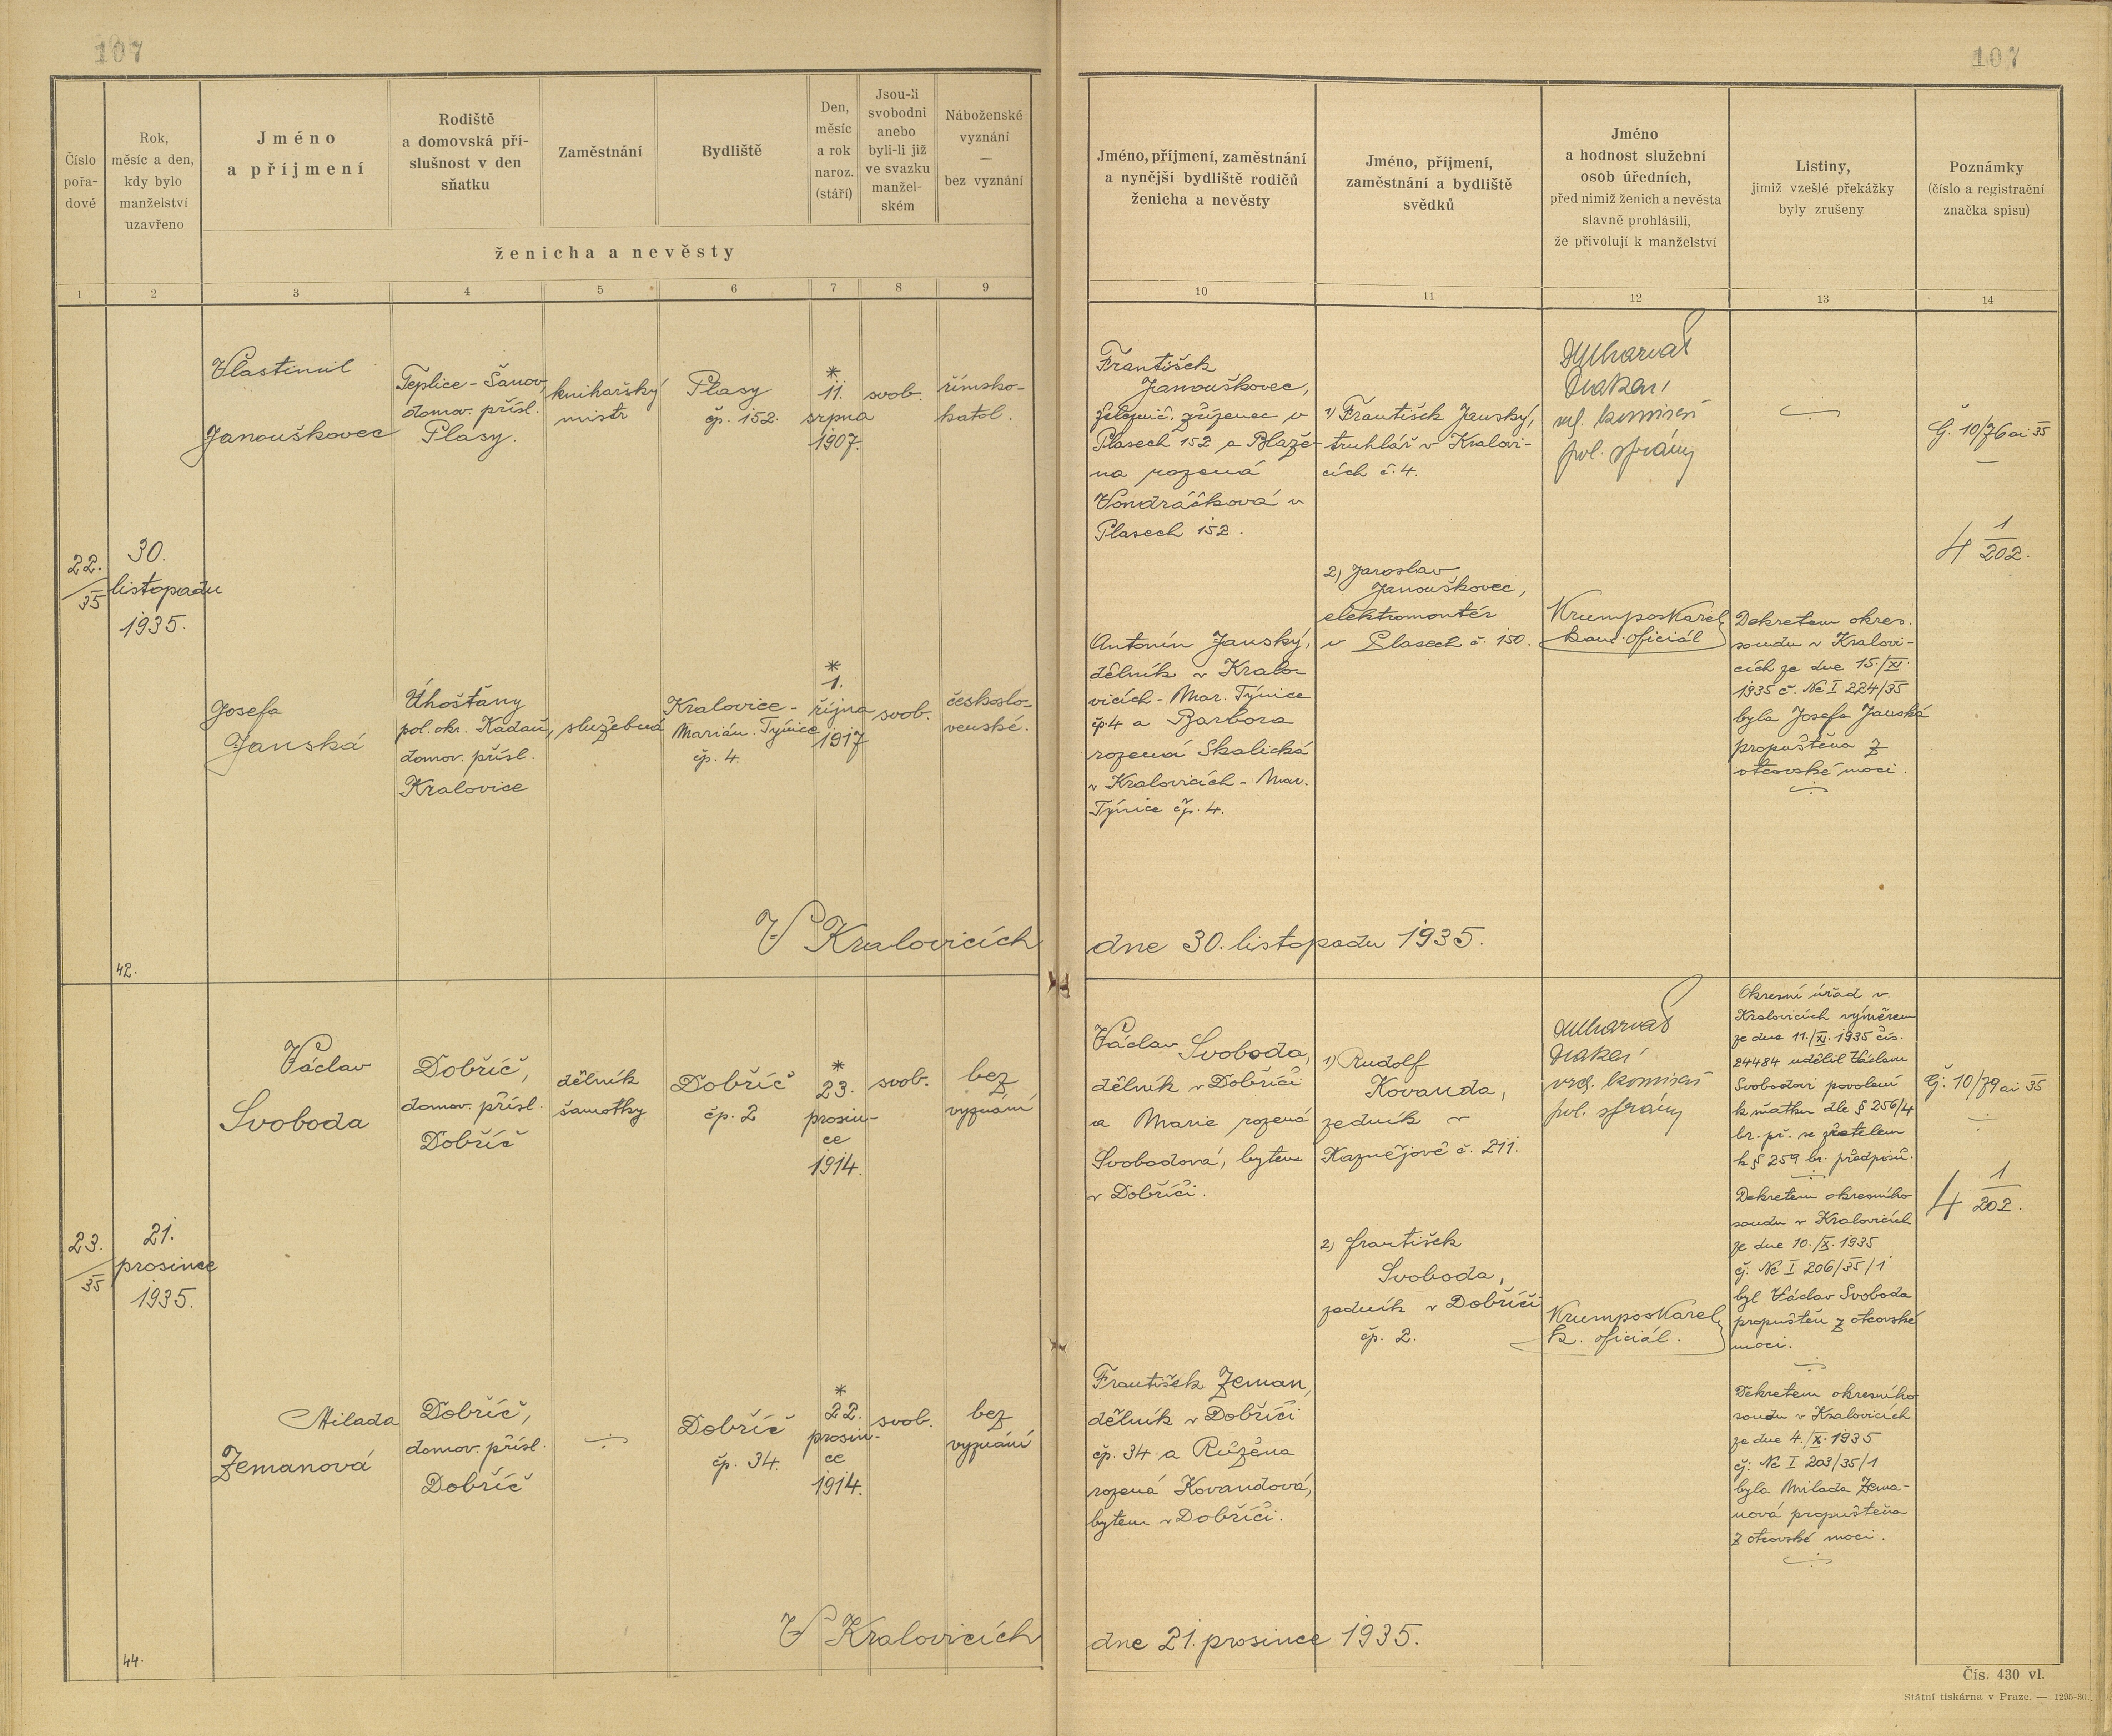 107
107
Číslo
pořa-
dové
Rok,
měsíc a den,
kdy bylo
manželství
uzavřeno
Jméno
a příjmení
Rodiště
a domovská pří-
slušnost v den
sňatku
Zaměstnání
Bydliště
Den,
měsíc
a rok
naroz.
(stáří)
Jsou-li
svobodni
anebo
byli-li již
ve svazku
manžel-
ském
Náboženské
vyznání
—
bez vyznání
ženicha a nevěsty
Jméno, příjmení, zaměstnání
a nynější bydliště rodičů
ženicha a nevěsty
Jméno, příjmení,
zaměstnání a bydliště
svědků
Jméno
a hodnost služební
osob úředních,
před nimiž ženich a nevěsta
slavně prohlásili,
že přivolují k manželství
Listiny,
jimiž vzešlé překážky
byly zrušeny
Poznámky
(číslo a registrační
značka spisu)
1 2 3 4 5 6 7 8 9 10 11 12 13 14
22.
35
30.
listopadu
1935.
Vlastimil
Janouškovec
Teplice - Šanov,
domov. přísl.
Plasy.
knihařský
mistr
Plasy
čp. 152.
*
11.
srpna
1907.
svob.
římsko-
katol.
František
Janouškovec,
železnič. zřízenec v
Plasech 152 a Blaže-
na rozená
Vondráčková v
Plasech 152.
1) František Janský,
truhlář v Kralovi-
cích č. 4.
2) Jaroslav
Janouškovec,
elektromontér
v Plasech č. 150.
pol. správy
Krumpos Karel
kanc. oficiál
Č. 10/76 ai 35
4 1
202.
Josefa
Janská
Úhošťany
pol. okr. Kadaň,
domov. přísl.
Kralovice
služebná
Kralovice -
Marián. Týnice
čp. 4.
*
1.
října
1917
svob.
českoslo-
venské.
Antonín Janský,
dělník v Kralo-
vicích - Mar. Týnice
čp. 4 a Barbora
rozená Skalická
v Kralovicích - Mar.
Týnice čp. 4.
Dekretem okres.
soudu v Kralovi-
cích ze dne 15./XI.
1935 č. Nc I 224/35
byla Josefa Janská
propuštěna z
otcovské moci.
42.
V Kralovicích dne 30. listopadu 1935.
23.
35
21.
prosince
1935.
Václav
Svoboda
Dobříč,
domov. přísl.
Dobříč
dělník
šamotky
Dobříč
čp. 2
*
23.
prosin-
ce
1914.
svob.
bez
vyznání
Václav Svoboda,
dělník v Dobříči
a Marie rozená
Svobodová, bytem
v Dobříči.
1) Rudolf
Kovanda,
zedník v
Kaznějově č. 211.
2) František
Svoboda,
zedník v Dobříči
čp. 2.
pol. správy
Krumpos Karel
k. oficiál.
Okresní úřad v
Kralovicích výměrem
ze dne 11./XI. 1935 čís.
24484 udělil Václavu
Svobodovi povolení
k sňatku dle § 256/4
br. př. se zřetelem
k § 259 br. předpisů.
Dekretem okresního
soudu v Kralovicích
ze dne 10./X. 1935
čj. Nc I 206/35/1
byl Václav Svoboda
propuštěn z otcovské
moci.
Č. 10/79 ai 35
4 1
202.
Milada
Zemanová
Dobříč,
domov. přísl.
Dobříč
Dobříč
čp. 34.
*
22.
prosin-
ce
1914.
svob.
bez
vyznání
František Zeman,
dělník v Dobříči
čp. 34 a Růžena
rozená Kovandová,
bytem v Dobříči.
Dekretem okresního
soudu v Kralovicích
ze dne 4./X. 1935
čj. Nc I 203/35/1
byla Milada Zema-
nová propuštěna
z otcovské moci.
44.
V Kralovicích dne 21. prosince 1935.
Čís. 430 vl.
Státní tiskárna v Praze. — 1295-30.